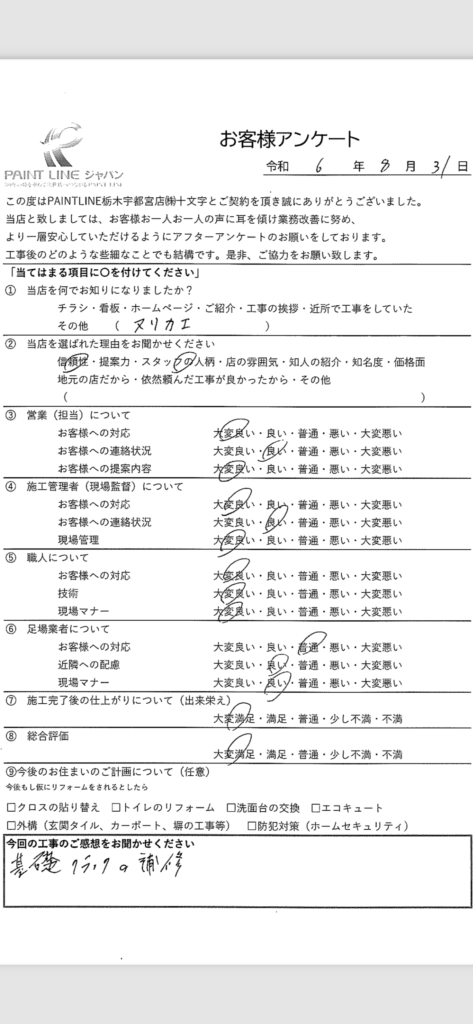 お客様アンケート
PAINT LINE ジャパン
令和 6 年 8 月 31 日
この度はPAINTLINE栃木宇都宮店㈱十文字とご契約を頂き誠にありがとうございました。
当店と致しましては、お客様お一人お一人の声に耳を傾け業務改善に努め、
より一層安心していただけるようにアフターアンケートのお願いをしております。
工事後のどのような些細なことでも結構です。是非、ご協力をお願い致します。
「当てはまる項目に〇を付けてください」
① 当店を何でお知りになりましたか？
チラシ・看板・ホームページ・ご紹介・工事の挨拶・近所で工事をしていた
その他 （ ヌリカエ ）
② 当店を選ばれた理由をお聞かせください
信頼性・提案力・スタッフの人柄・店の雰囲気・知人の紹介・知名度・価格面
地元の店だから・依然頼んだ工事が良かったから・その他
（ ）
③ 営業（担当）について
お客様への対応 大変良い・良い・普通・悪い・大変悪い
お客様への連絡状況 大変良い・良い・普通・悪い・大変悪い
お客様への提案内容 大変良い・良い・普通・悪い・大変悪い
④ 施工管理者（現場監督）について
お客様への対応 大変良い・良い・普通・悪い・大変悪い
お客様への連絡状況 大変良い・良い・普通・悪い・大変悪い
現場管理 大変良い・良い・普通・悪い・大変悪い
⑤ 職人について
お客様への対応 大変良い・良い・普通・悪い・大変悪い
技術 大変良い・良い・普通・悪い・大変悪い
現場マナー 大変良い・良い・普通・悪い・大変悪い
⑥ 足場業者について
お客様への対応 大変良い・良い・普通・悪い・大変悪い
近隣への配慮 大変良い・良い・普通・悪い・大変悪い
現場マナー 大変良い・良い・普通・悪い・大変悪い
⑦ 施工完了後の仕上がりについて（出来栄え）
大変満足・満足・普通・少し不満・不満
⑧ 総合評価
大変満足・満足・普通・少し不満・不満
⑨今後のお住まいのご計画について（任意）
今後もし仮にリフォームをされるとしたら
□クロスの貼り替え □トイレのリフォーム □洗面台の交換 □エコキュート
□外構（玄関タイル、カーポート、塀の工事等） □防犯対策（ホームセキュリティ）
今回の工事のご感想をお聞かせください
基礎クラックの補修